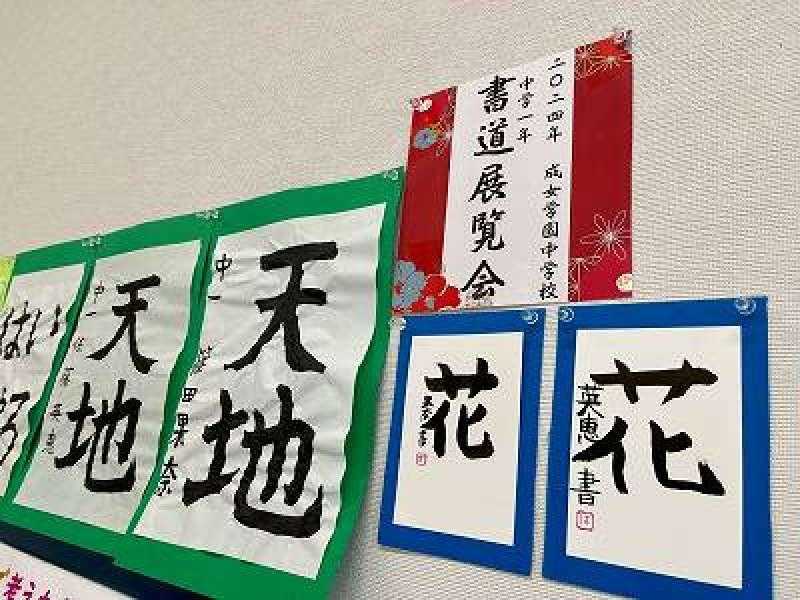 二〇二四年 成女学園中学校
中学一年
書道展覧会
花
英恵書
花
天地
中一
田果奈
天地
中一 佐藤英恵
はい